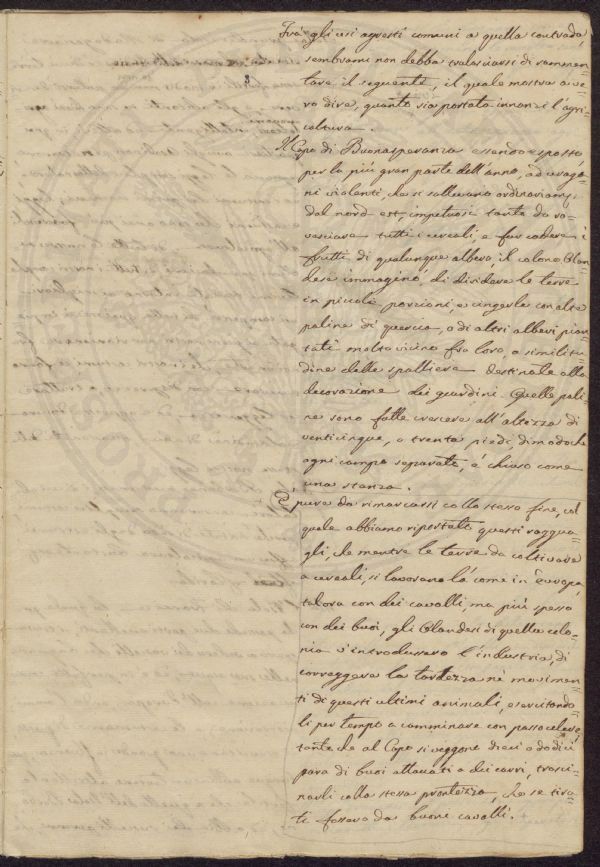 Frà gli usi agresti comuni a quella contrada,
sembrami non debba tralasciarsi di rammen=
tare il seguente, il quale mostra a ve=
ro dire, quanto sia portata innanzi l'agri=
coltura.
Il Capo di Buonasperanza essendo esposto
per la più gran parte dell'anno, ad uraga=
ni violenti, che si sollevano ordinariam:
dal nord est, impetuosi tanto da ro=
vesciare tutti i cereali, e fur cadere i
frutti di qualunque albero, il colono Olan=
dese immaginò, di dividere le terre
in piccole porzioni, e cingerle con alte
paline di quercia, o di altri alberi pian=
tati molto vicino fra loro, a similitu=
dine delle spalliere destinate alla
decorazione dei giardini. Quelle pali=
ne sono fatte crescere all'altezza di
venticinque, o trenta piedi, dimodoche
ogni campo separato, é chiuso come
una stanza.
É pure da rimarcarsi collo stesso fine, col
quale abbiamo riportato questi raggua=
gli, che mentre le terre da coltivare
a cereali, si lavorano là come in Europa,
talora con dei cavalli, ma più spesso
con dei buoi, gli Olandesi di quella colo=
nia v'introdussero l'industria, di
correggere la tardezza ne movimen=
ti di questi ultimi animali, esercitando=
li per tempo a camminare con passo celere,
tanto che al Capo si veggono dieci o dodici
para di buoi attaccati a dei carri, trasci=
narli colla stessa prontezza, che se tira=
ti fossero da buoni cavalli.